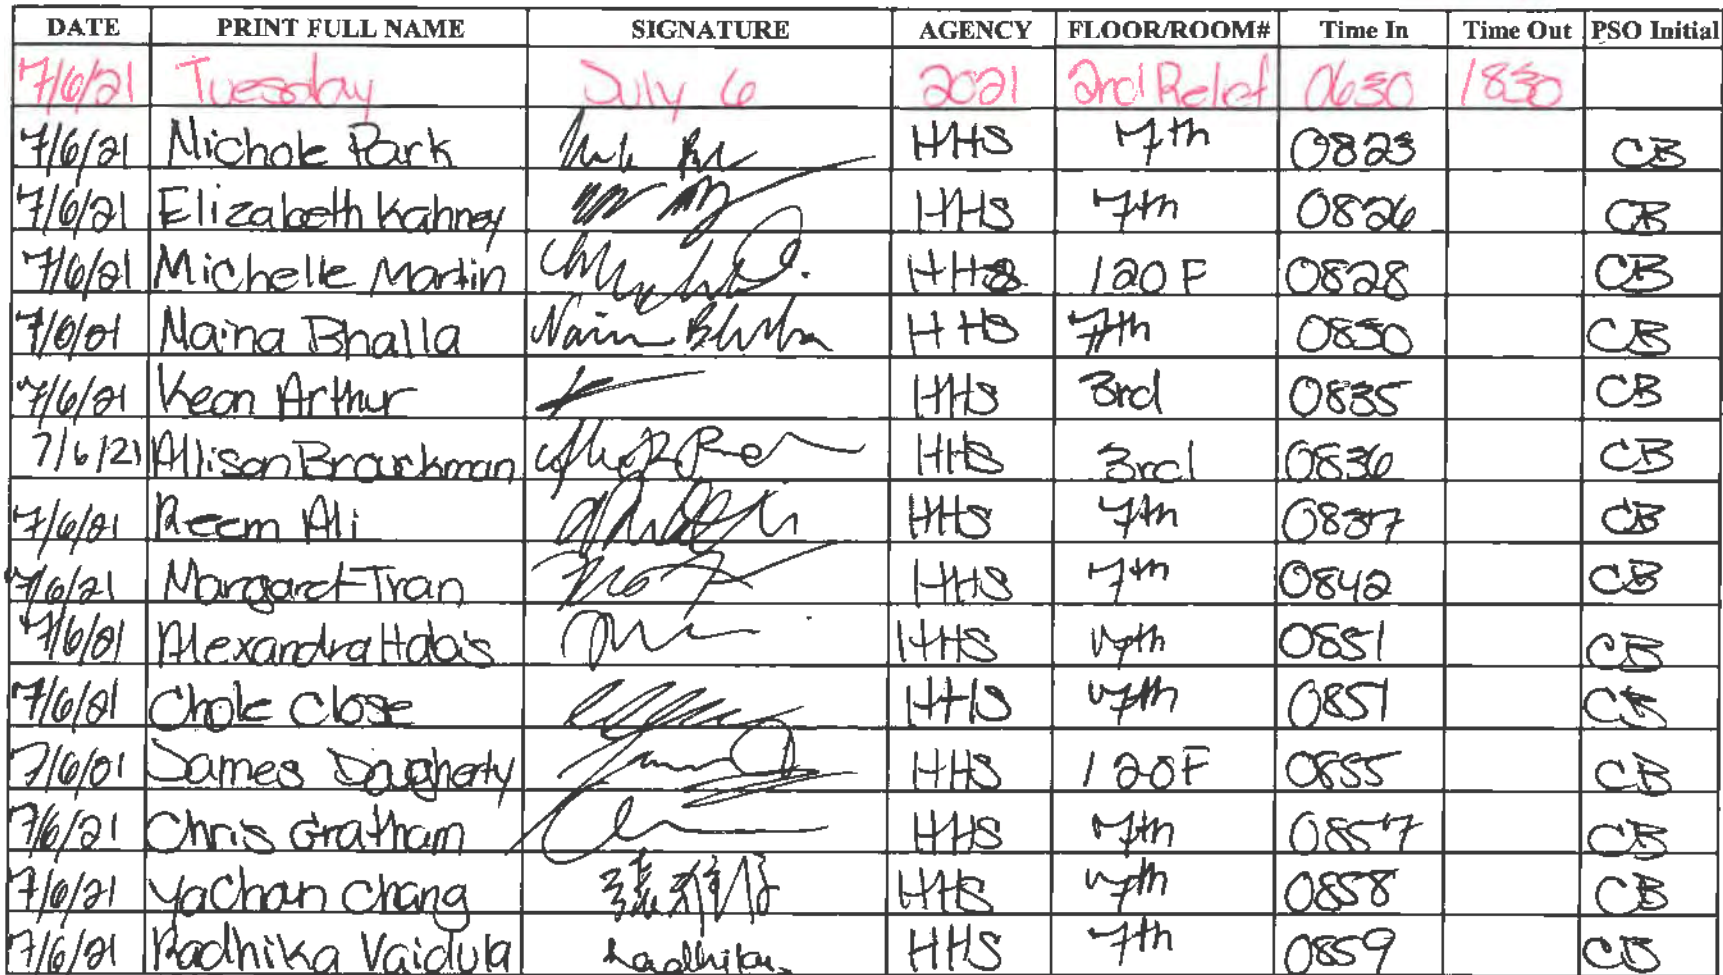 DATE PRINT FULL NAME SIGNATURE AGENCY FLOOR/ROOM# Time In Time Out PSO Initial
7/6/21 Tuesday July 6 2021 2nd Relief 0630 1830
7/6/21 Nichole Park HHS 7th 0823 CB
7/6/21 Elizabeth Kahney HHS 7th 0826 CB
7/6/21 Michelle Martin HHS 120F 0828 CB
7/6/21 Naina Bhalla HHS 7th 0830 CB
7/6/21 Kean Arthur HHS 3rd 0835 CB
7/6/21 Allison HHS 3rd 0836 CB
7/6/21 Reem Ali HHS 7th 0837 CB
7/6/21 Margaret Tran HHS 7th 0842 CB
7/6/21 Alexandra HHS 7th 0851 CB
7/6/21 Chole Close HHS 7th 0851 CB
7/6/21 James Daugherty HHS 120F 0855 CB
7/6/21 Chris Gratham HHS 7th 0857 CB
7/6/21 YaChan Chang HHS 7th 0858 CB
7/6/21 Radhika Vaidula Radhika HHS 7th 0859 CB